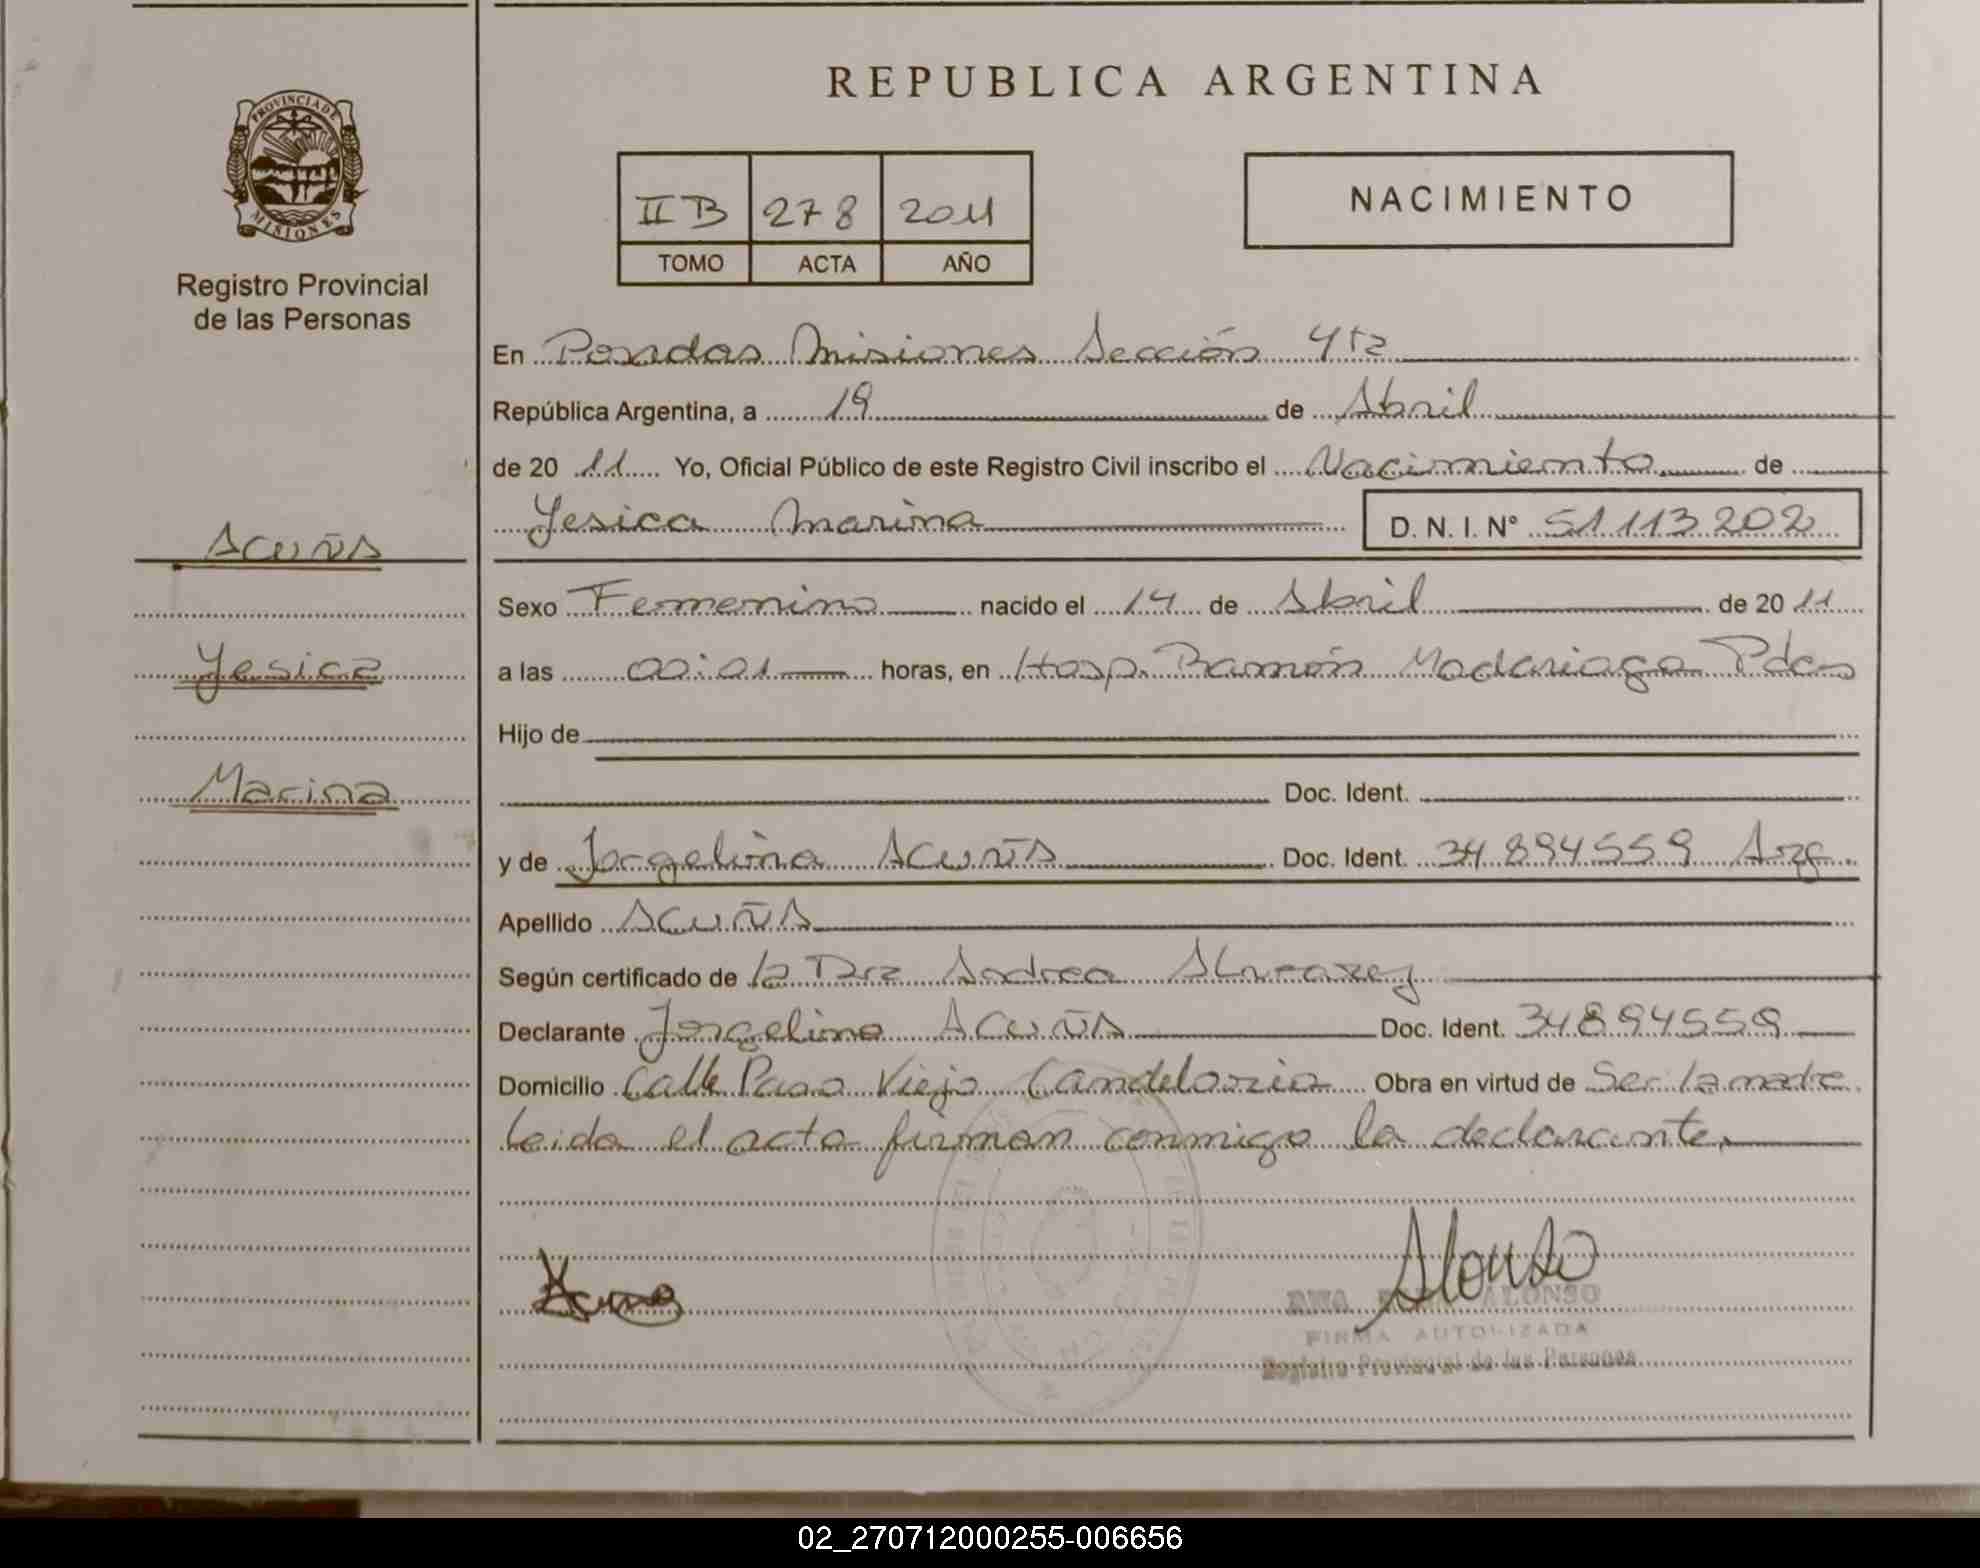 REPUBLICA ARGENTINA
PROVINCIA DE MISIONES
Registro Provincial
de las Personas
II B 278 2011
TOMO ACTA AÑO
NACIMIENTO
En Posadas Misiones Sección 4ta
República Argentina, a 19 de Abril
de 20 11 Yo, Oficial Público de este Registro Civil inscribo el Nacimiento de
Yesica Marina D. N. I. N° 51.113.202
ACUÑA
Yesica
Marina
Sexo Femenino nacido el 14 de Abril de 20 11
a las 00:01 horas, en Hosp. Ramón Madariaga Pdas
Hijo de
Doc. Ident.
y de Jorgelina ACUÑA Doc. Ident. 34.894.559 Arg.
Apellido ACUÑA
Según certificado de la Dra Andrea Alvarez
Declarante Jorgelina ACUÑA Doc. Ident. 34894559
Domicilio Calle Paso Viejo Candelaria Obra en virtud de Ser la madre
Leida el acta firman conmigo la declarante.
Acuña
Alonso
ANA ALONSO
FIRMA AUTORIZADA
Registro Provincial de las Personas
02_270712000255-006656